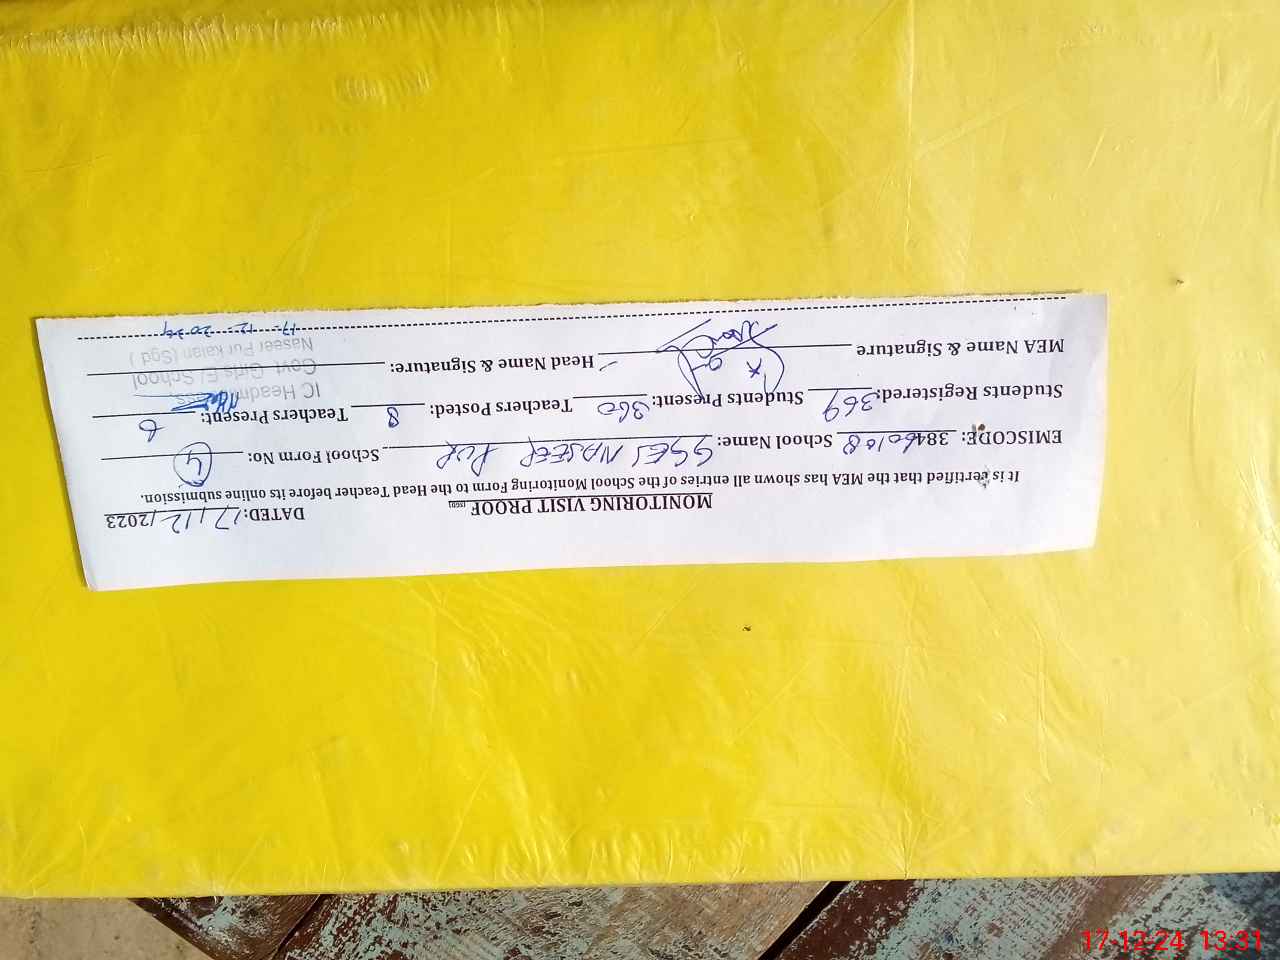 MONITORING VISIT PROOF (SGD)
DATED: 17/12/2023
It is certified that the MEA has shown all entries of the School Monitoring Form to the Head Teacher before its online submission.
EMISCODE: 38460108 School Name: GGES NASEER PUR School Form No: 4
Students Registered: 369 Students Present: 360 Teachers Posted: 8 Teachers Present: 6
IC Headmistress
MEA Name & Signature Head Name & Signature:
Govt. Girls E/ School
Naseer Pur Kalan (Sgd)
17-12-2024
17-12-24 13:31